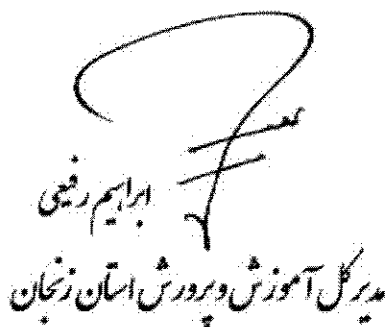 ابراهیم رفیعی
مدیرکل آموزش و پرورش استان زنجان